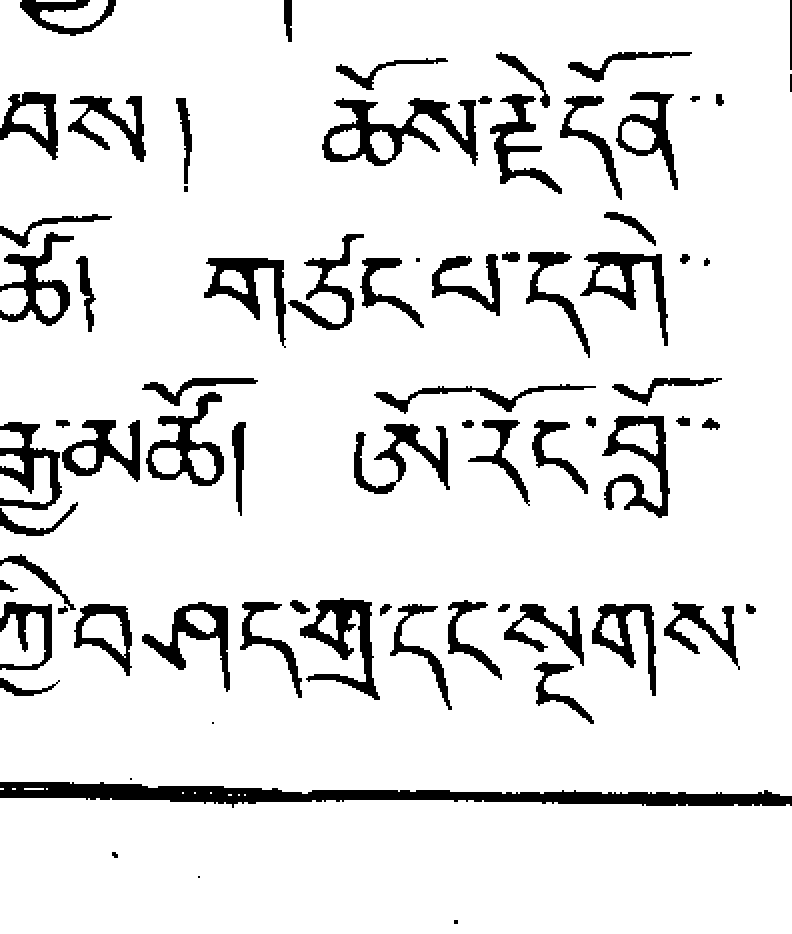 བས། ཆོས་རྗེ་དོན་
ཚོ། གཙང་པ་དགེ་
རྒྱ་མཚོ། ཨོ་རོང་བློ་
ཀྱི་བཤད་གྲ་དང་སྔགས་